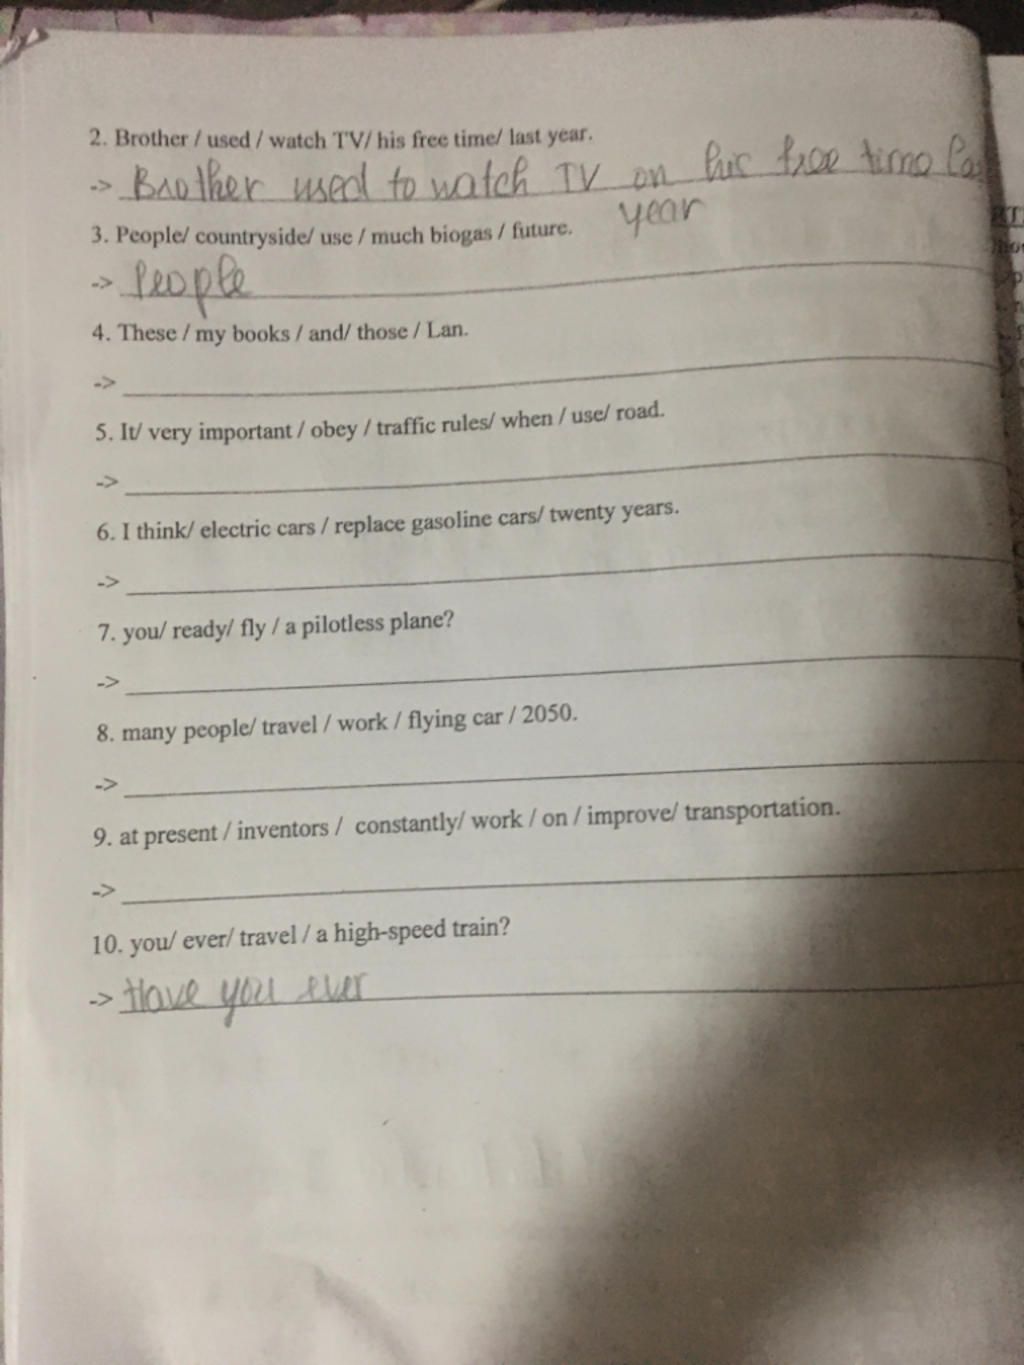 2. Brother / used / watch TV/ his free time/ last year.
-> Brother used to watch TV on his free time
year
3. People/ countryside/ use / much biogas / future.
-> People
4. These / my books / and/ those / Lan.
->
5. It/ very important / obey / traffic rules/ when / use/ road.
->
6. I think/ electric cars / replace gasoline cars/ twenty years.
->
7. you/ ready/ fly / a pilotless plane?
->
8. many people/ travel / work / flying car / 2050.
->
9. at present / inventors / constantly/ work / on / improve/ transportation.
->
10. you/ ever/ travel / a high-speed train?
-> Have you ever